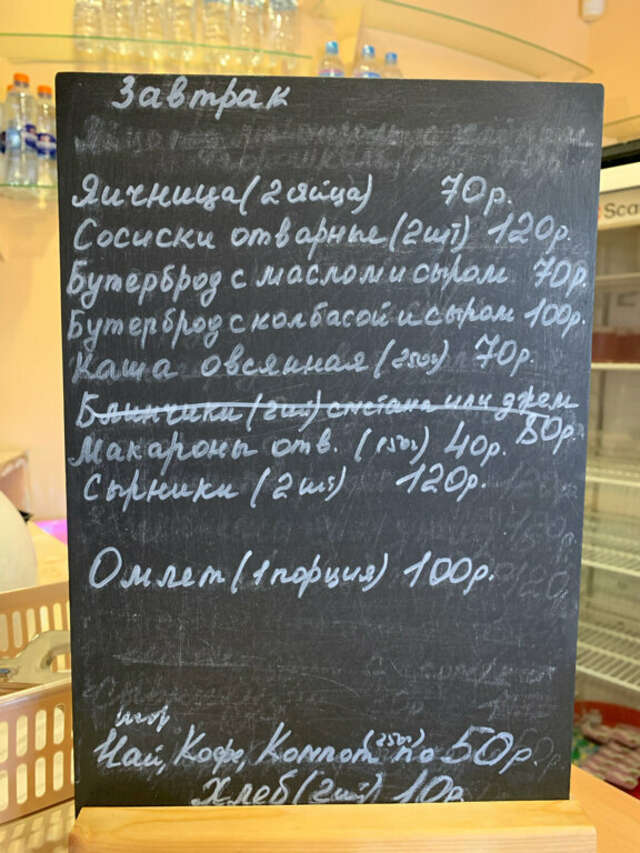 Завтрак
Яичница (2 яйца) 70р.
Сосиски отварные (2шт) 120р.
Бутерброд с маслом и сыром 70р.
Бутерброд с колбасой и сыром 100р.
Каша овсянная (250г) 70р.
Блинчики (2шт) сметана или джем
80р.
Макароны отв. (150г) 40р.
Сырники (2шт) 120р.
Омлет (1 порция) 100р.
Чай, Кофе, Компот (250г) по 50р.
Хлеб (2шт) 10р.
Sca